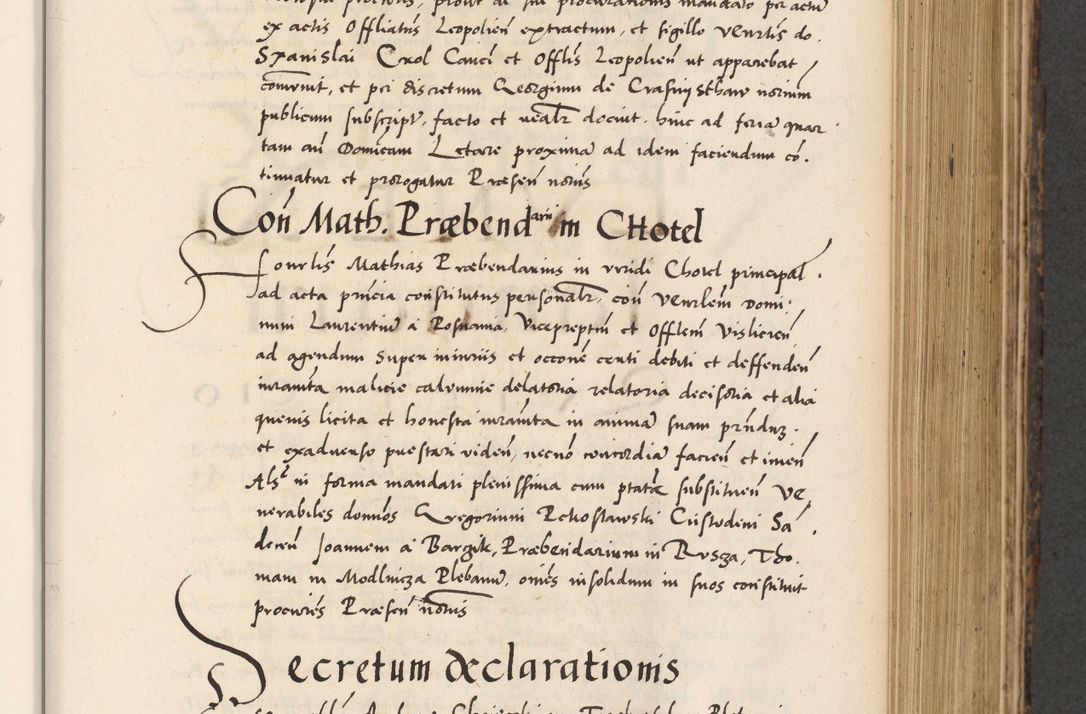 ex actis Offliatus Leopolien extractum, et sigillo Venrlis do.
Stanislai Crol Canci et Offlis Leopolien ut apparebat
convenit, et per discretum Georgium de Crasnijsthaw notarium
publicum subscript. facto et venabr docuit. hinc ad feria quar
tam an Domicam Letare proxima ad idem faciendum co.
tinuatur et prorogatur Præsen notris
Con Math. Præbend arii in CHotel
Honrlis Mathias Præbendarius in viridi Chotel principal.
ad acta pncia constitutus personabr. con Venrlem Domi:
num Laurentiu a Posnania, Vicepreptm et Offlem Vislicien
ad agendum super iniuriis et occone certi debiti et deffenden
iuramta malicie calumnie delatoria relatoria decisoria et alia
quevis licita et honesta iuramta in anima suam prnduz.
et exadverso prestari viden, necno concordia facien et inien
Als in forma mandati plenissima cum ptate substituen Ve
nerabiles domnos Gregorium Pchoslawski Custodem Sa
decen Joannem a Bargik, Præbendarium in Busza, Tho.
mam in Modlnicza Plebanu, omes insolidum in suos constituit
procures Præsen notris
Decretum declarationis